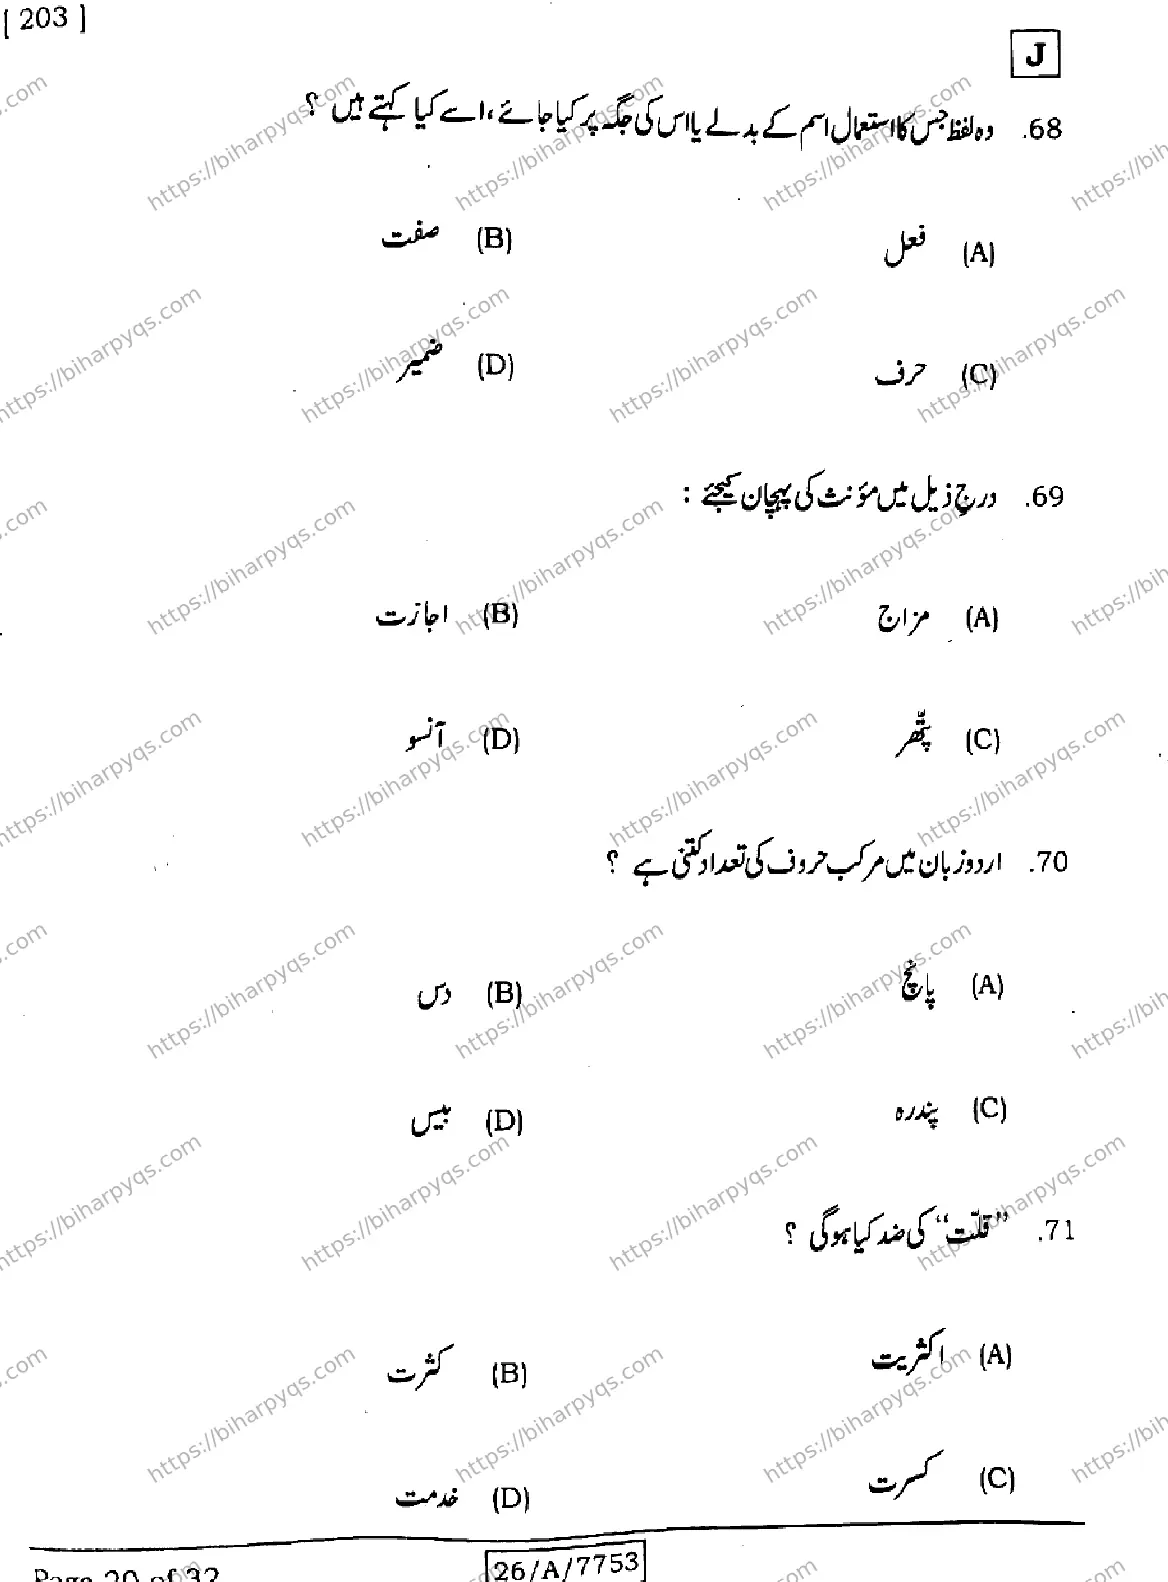 [ 203 ]
J
68. وہ لفظ جس کا استعمال اسم کے بدلے یا اس کی جگہ پر کیا جائے، اسے کیا کہتے ہیں ؟
(A) فعل (B) صفت
(C) حرف (D) ضمیر
69. درج ذیل میں مؤنث کی پہچان کیجئے :
(A) مزاج (B) اجازت
(C) پتّھر (D) آنسو
70. اردو زبان میں مرکب حروف کی تعداد کتنی ہے ؟
(A) پانچ (B) دس
(C) پندرہ (D) بیس
71. ”قلّت“ کی ضد کیا ہوگی ؟
(A) اکثریت (B) کثرت
(C) کسرت (D) خدمت
Page 20 of 32 26/A/7753
https://biharpyqs.com